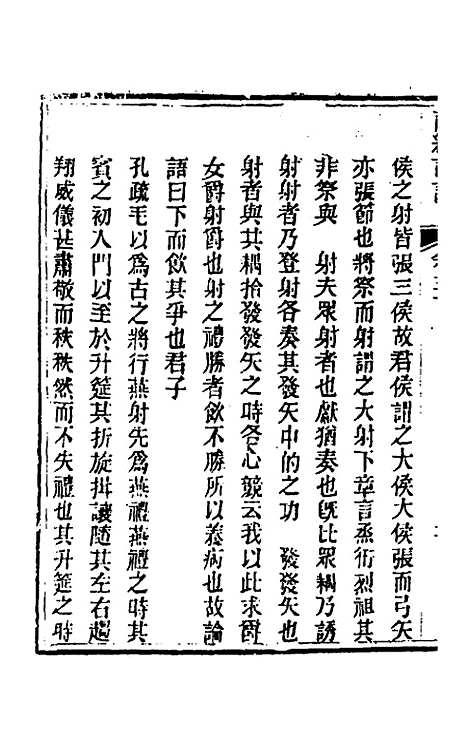 侯之射皆張三侯故君侯謂之大侯大侯張而弓矢
亦張節也將祭而射謂之大射下章言烝衎烈祖其
非祭與　射夫眾射者也獻猶奏也既比眾耦乃誘
射射者乃登射各奏其發矢中的之功　發發矢也
射者與其耦拾發發矢之時各心競云我以此求爵
女爵射爵也射之禮勝者飲不勝所以養病也故論
語曰下而飲其爭也君子
孔疏毛以為古之將行燕射先為燕禮燕禮之時其
賓之初入門以至於升筵其折旋揖讓隨其左右趨
翔威儀甚肅敬而秩秩然而不失禮也其升筵之時